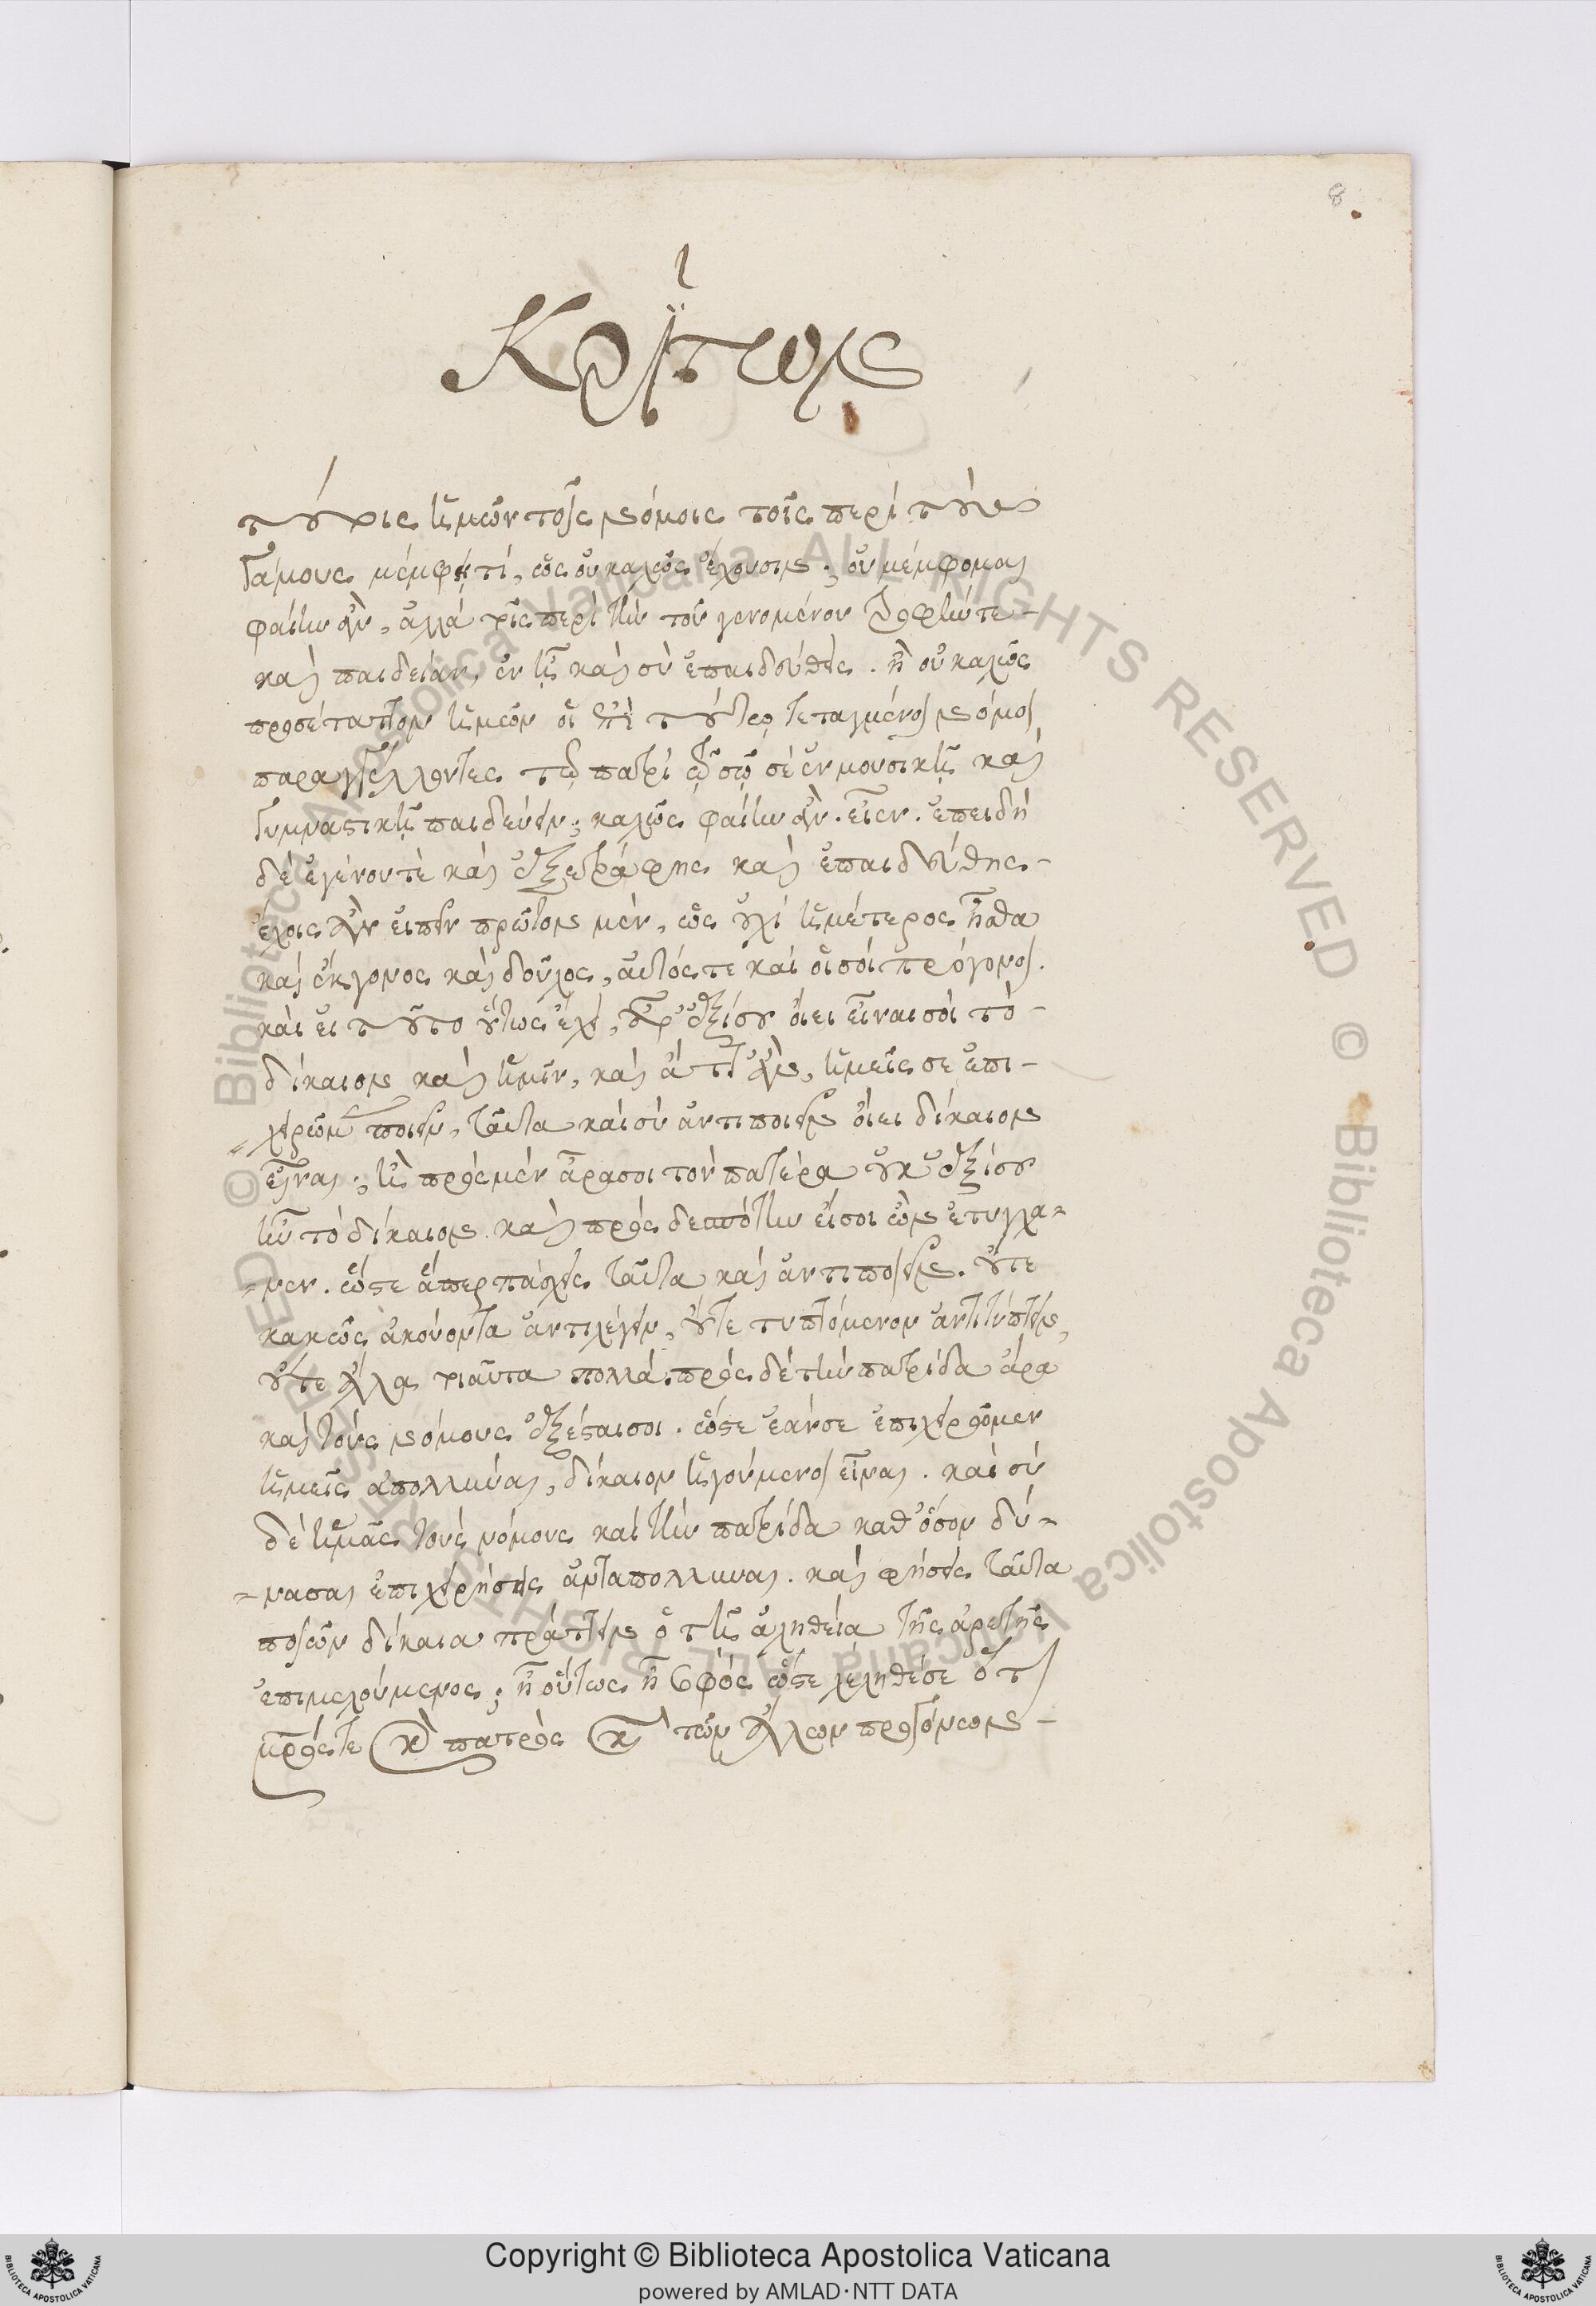 8
Κρίτων
τούτοις ἡμῶν τοῖς νόμοις τοῖς περὶ τοὺς
γάμους μέμφῃ τί, ὡς οὐ καλῶς ἔχουσιν; οὐ μέμφομαι
φαίην ἂν, ἀλλὰ τοῖς περὶ τὴν τοῦ γενομένου τροφήν τε
καὶ παιδείαν, ἐν ᾗ καὶ σὺ ἐπαιδεύθης. ἢ οὐ καλῶς
προσέταττον ἡμῶν οἱ ἐπὶ τούτῳ τεταγμένοι νόμοι
παραγγέλλοντες τῷ πατρὶ τῷ σῷ σὲ ἐν μουσικῇ καὶ
γυμναστικῇ παιδεύειν; καλῶς φαίην ἂν. εἶεν. ἐπειδὴ
δὲ ἐγένου τὲ καὶ ἐξετράφης καὶ ἐπαιδεύθης
ἔχοις ἂν εἰπεῖν πρῶτον μὲν, ὡς οὐχὶ ἡμέτερος ἦσθα
καὶ ἔκγονος καὶ δοῦλος, αὐτός τε καὶ οἱ σοὶ πρόγονοι.
καὶ εἰ τοῦτο οὕτως ἔχει, ἆρ' ἐξίσου οἴει εἶναι σοὶ τὸ
δίκαιον καὶ ἡμῖν, καὶ ἅττ' ἂν, ἡμεῖς σε ἐπι-
-χειρῶμεν ποιεῖν, ταῦτα καὶ σὺ ἀντιποιεῖν οἴει δίκαιον
εἶναι; ἢ πρὸς μὲν ἄρα σοι τὸν πατέρα οὐκ ἐξίσου
ἦν τὸ δίκαιον καὶ πρὸς δεσπότην εἴ σοι ὢν ἐτύγχα-
-νεν. ὥστε ἅπερ πάσχεις ταῦτα καὶ ἀντιποιεῖν. οὔτε
κακῶς ἀκούοντα ἀντιλέγειν, οὔτε τυπτόμενον ἀντιτύπτειν,
οὔτε ἄλλα τοιαῦτα πολλά. πρὸς δὲ τὴν πατρίδα ἄρα
καὶ τοὺς νόμους ἐξέσται σοι. ὥστε ἐάν σε ἐπιχειρῶμεν
ἡμεῖς ἀπολλύναι, δίκαιον ἡγούμενοι εἶναι. καὶ σὺ
δὲ ἡμᾶς τοὺς νόμους καὶ τὴν πατρίδα καθ' ὅσον δύ-
-νασαι ἐπιχειρήσεις ἀνταπολλύναι. καὶ φήσεις ταῦτα
ποιῶν δίκαια πράττειν ὁ τῇ ἀληθεία τῆς ἀρετῆς
ἐπιμελούμενος; ἢ οὕτως ἦ σοφός ὥστε λέληθέ σε ὅτι
μητρός τε καὶ πατρὸς καὶ τῶν ἄλλων προγόνων
Copyright © Biblioteca Apostolica Vaticana
powered by AMLAD·NTT DATA